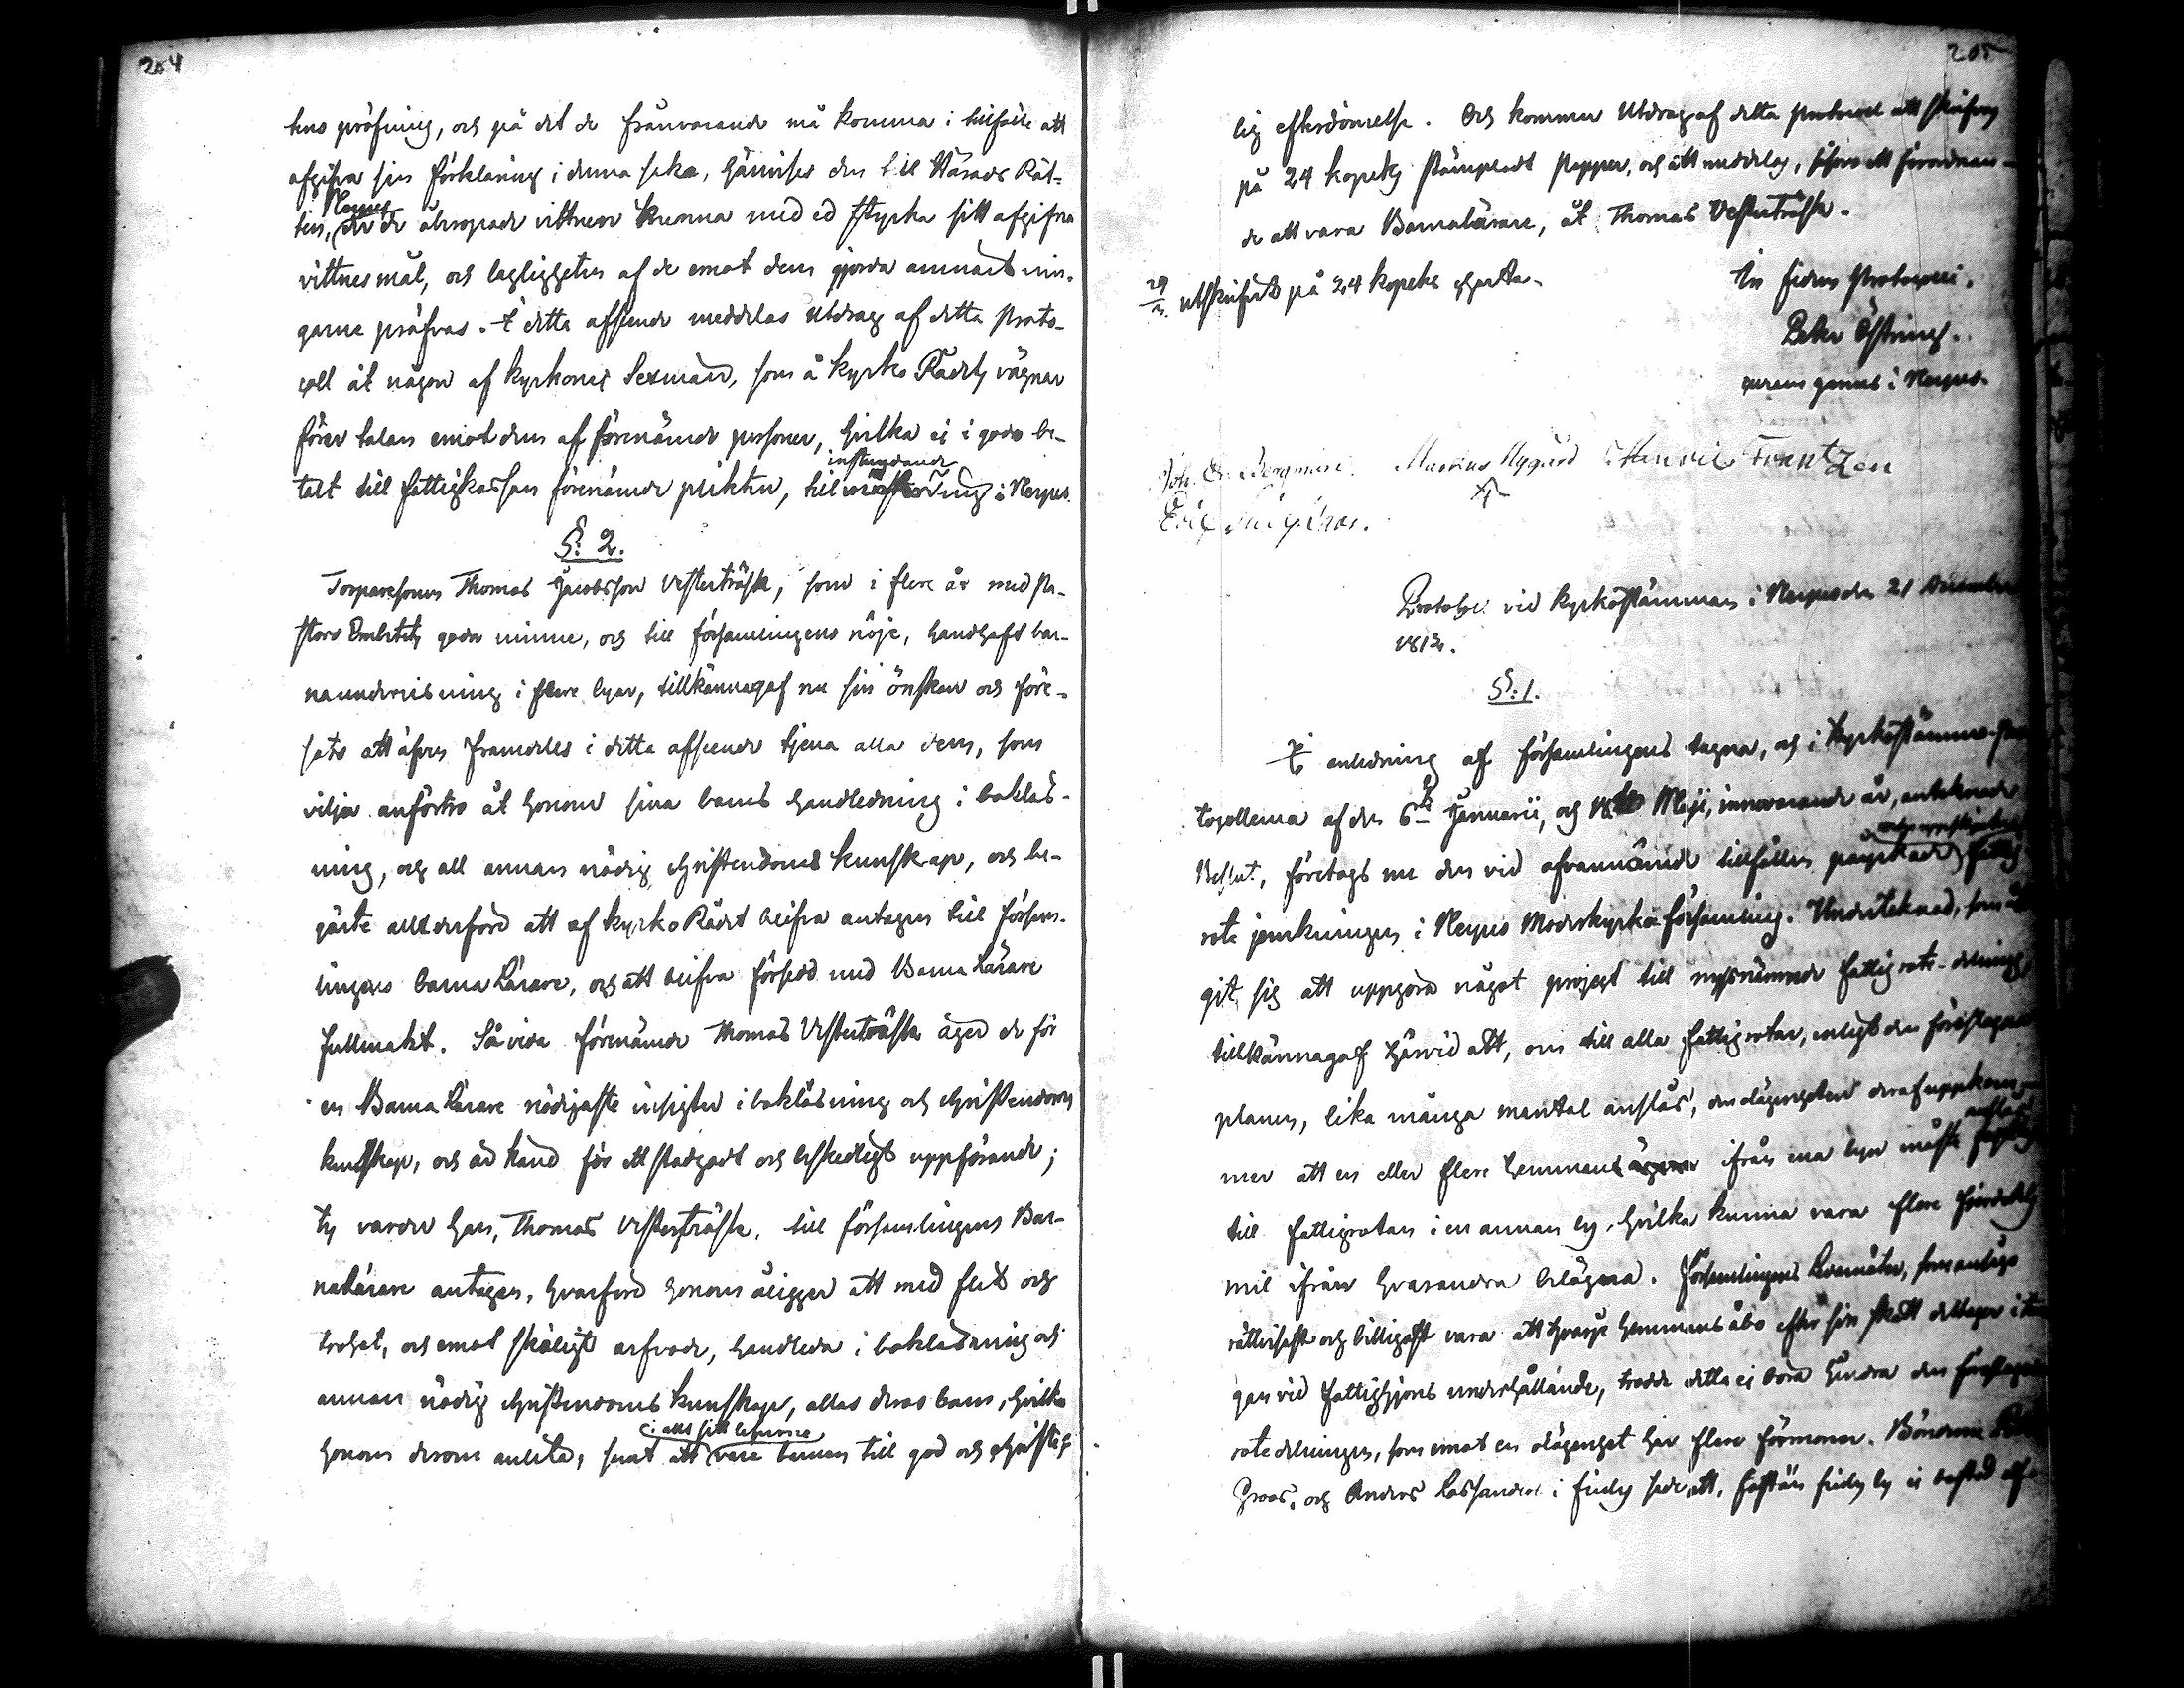 204
hns pröfning, och på det de frånvarande må komma i tillfälle att
afgifva sin förklaring i denna sak, hänvises den till Härads Rät-
Nerpes
ten, der de åberopade vittnen kunna med ed styrka sitt afgifna
vittnesmål, och lagligheten af de emot dem gjorda anmärknin-
garne pröfvas. I detta afseende meddelas Utdrag af detta Proto-
coll åt någon af kyrkones Sexmän, som å Kyrko Rådets vägnar
förer talan emot dem af förenämde personer, hvilka ej i godo be-
instundande
talt till fattigkassan förenämde plikter, till ting i Nerpes.
§: 2.
Torparesonen Thomas Jacobsson Vesterträsk, som i flere år med Pa-
stors Embetets goda minne, och till församlingens nöje, handhaft bar-
naundervisning i flere byar, tillkännagaf nu sin önskan och före-
sats att äfven framdeles i detta afseende tjena alla dem, som
vilja anförtro åt honom sina barns handledning i bokläs-
ning, och all annan nödig christendoms kunskap, och be-
gärte alldenförd att af kyrko Rådet blifva antagen till försam-
lingens barna Lärare, och att blifva försedd med Barna Lärare
fullmakt. Så vida förenämde Thomas Vesterträsk äger de för
en Barna Lärare nödigaste insigter i bokläsning och christendoms
kunskap, och är känd för ett stadgadt och beskedligt uppförande;
ty varder han, Thomas Vesterträsk, till församlingens Bar-
nalärare antagen, hvarföre honom åligger att med flit och
trohet, och emot skäligt arfvode, handleda i bokläsning och
annan nödig christendoms kunskap, allas deras barn, hvilka
i allt sitt lefverne
honom derom anlita, samt att vara barnen till god och christe-
205
lig efterdömelse. Och kommer Utdrag af detta Protocoll att skrifvas
på 24 kopeks stämpladt Papper, och att meddelas, såsom ett förordnan-
de att vara Barnalärare, åt Thomas Vesterträsk.
29 utskrifvit på 24 kopeks charta.
In fidem Protocolli.
Peter Östring.
Nerpes.
Joh. E. Bergman. Mattias Nygård Henric Frantzén
Eric
Protocoll vid Kyrkostämman i Nerpes den 21 December
1812.
§: 1.
I anledning af församlingens tagna, och i Kyrkostämmo-Pro-
tocollerna af den 6te Januarii, och Maji, innevarande år, antecknade
Beslut, företogs nu den vid ofvannämde tillfällen påyrkade fattig
rote jemkningen i Nerpes Moderkyrko församling. Undertecknad, som åta
git sig att uppgöra något project till nyssnämnde fattig rote-delning,
tillkännagaf härvid att, om till alla fattigrotar, enligt den föreslagne
planen, lika många mantal anslås, den olägenheten deraf uppkom-
anslås
mer att en eller flere hemmans ifrån ena byn måste
till fattigrotan i en annan by, hvilka kunna vara flere fjerdedels
mil ifrån hvarandra belägna. Församlingens Ledamöter, som ansågo
rättvisast och billigast vara att hvarje hemmans åbo efter sin skatt deltager i tun
gan vid fattighjons underhållande, trodde detta ej böra hindra den föreslagna
rotedelningen, som emot en olägenhet har flere förmoner. Bönderne
och Anders Lassander i Finby sade att, fastän Finby by är